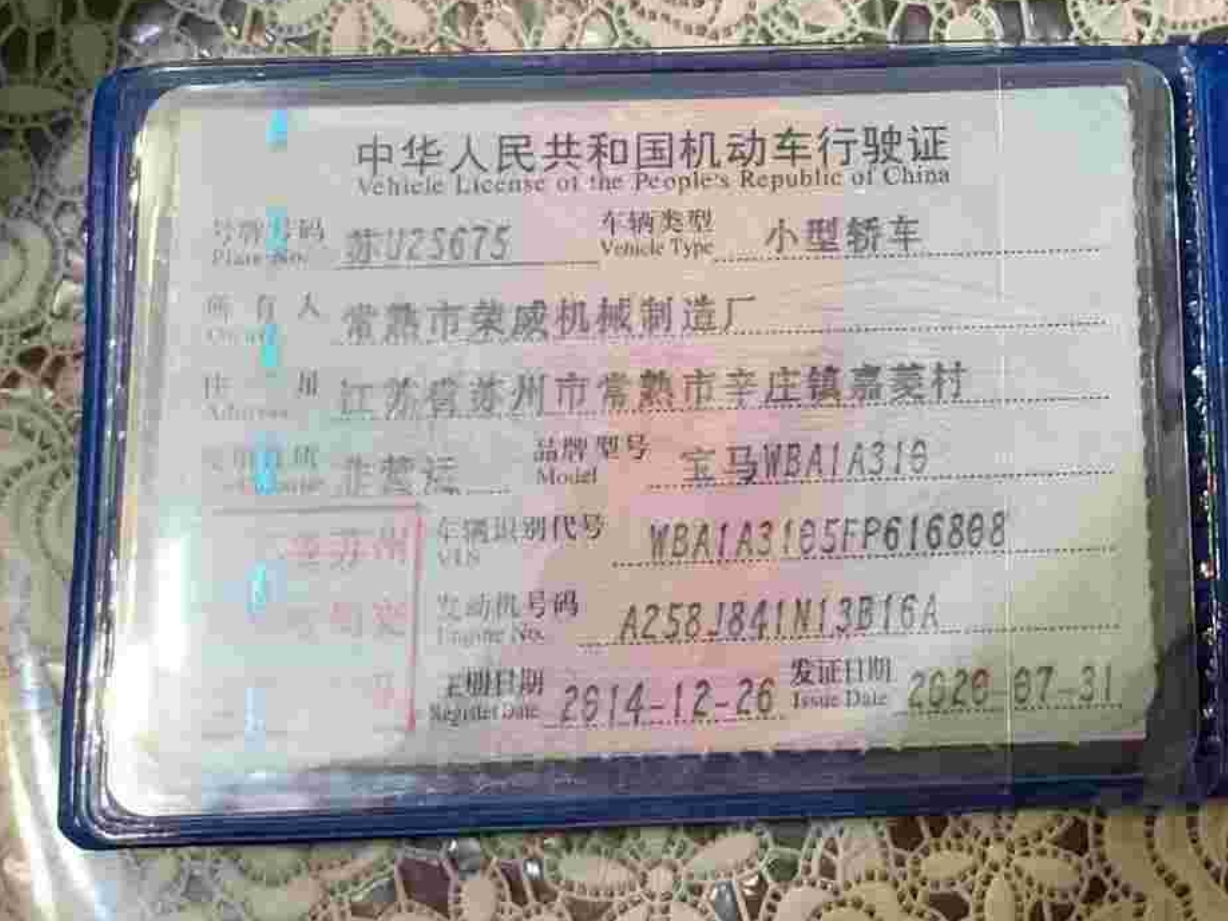 中华人民共和国机动车行驶证
Vehicle License of the People's Republic of China
号牌号码 苏U25675 车辆类型 小型轿车
Plate No. Vehicle Type
所有人 常熟市荣威机械制造厂
Owner
住址 江苏省苏州市常熟市辛庄镇嘉菱村
Address
非营运 品牌型号 宝马WBA1A310
Model
车辆识别代号 WBA1A3105FP616808
VIN
发动机号码 A258J841N13B16A
Engine No.
注册日期 2014-12-26 发证日期 2020-07-31
Register Date Issue Date
苏州